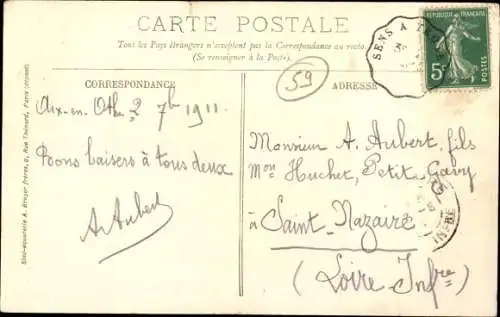 CARTE POSTALE
Tous les Pays Etrangers n'acceptent pas la Correspondance au recto.
(Se renseigner à la Poste).
SENS A
REPUBLIQUE FRANÇAISE
5c
59
CORRESPONDANCE
ADRESSE
Aix-en-Othe 2 7bre 1911
Bons baisers à tous deux
A. Aubert
Monsieur A. Aubert, fils
Mon Huchet, Petit Gavy
à Saint-Nazaire
(Loire Infre)
INFRE